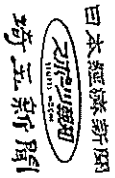 日本経済新聞
スポーツ報知
埼玉新聞